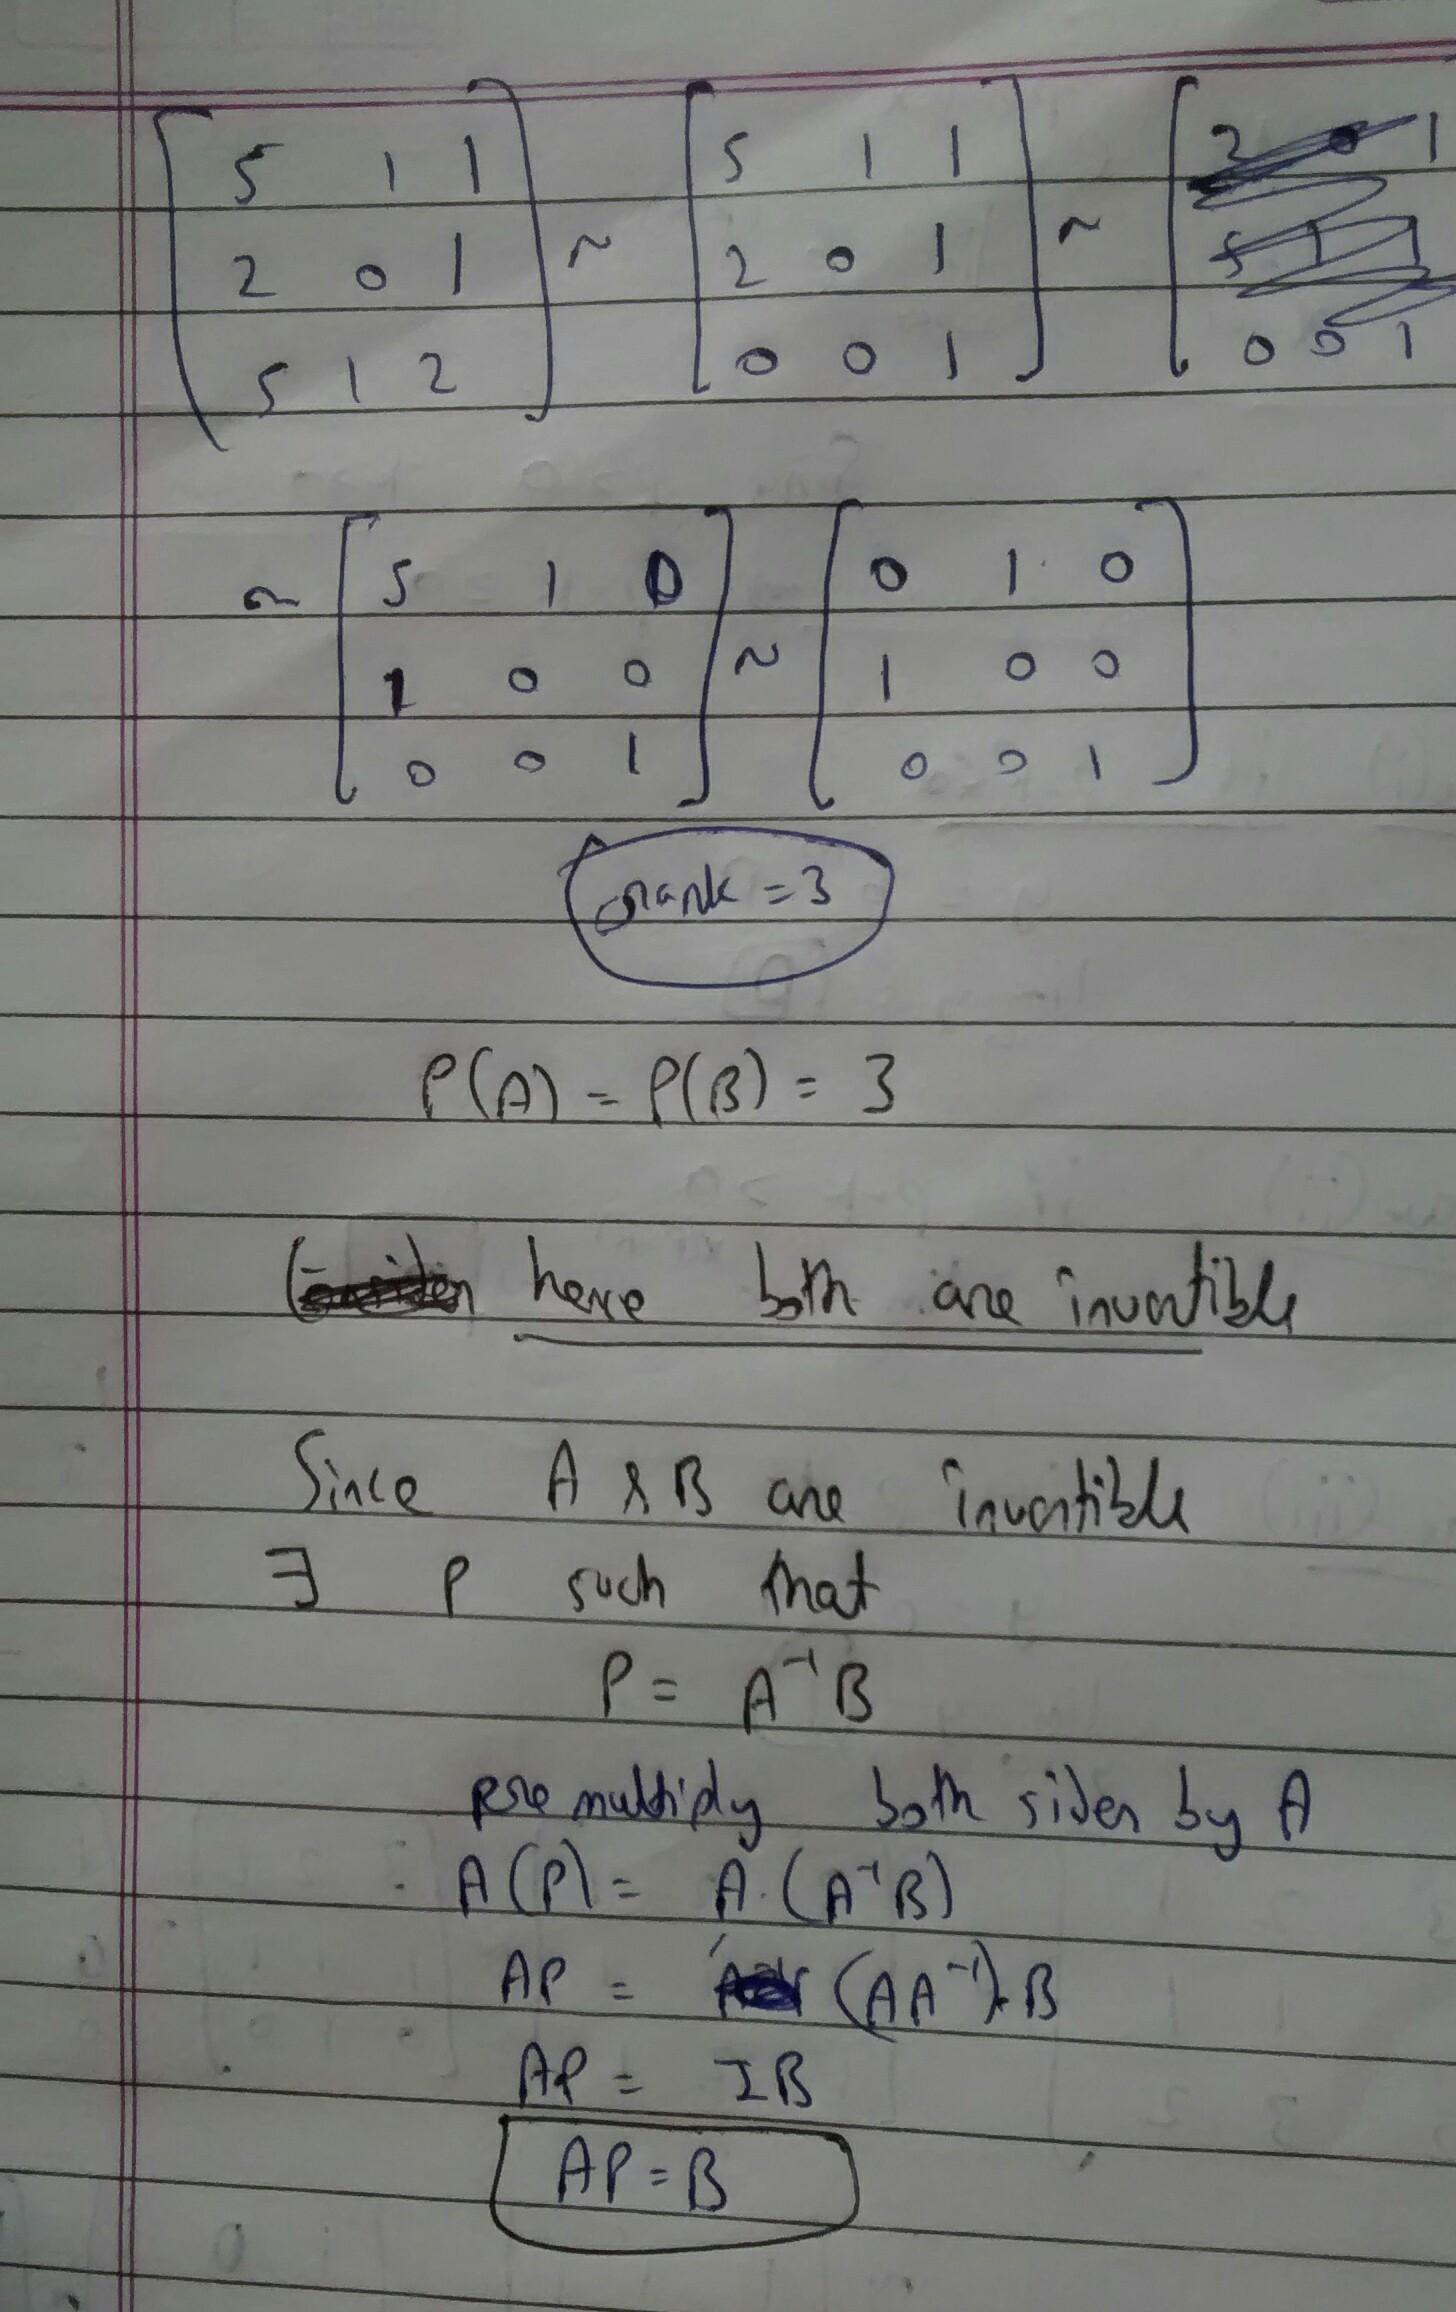 [ 5 1 1 ] ~ [ 5 1 1 ] ~ [ 2 0 1
[ 2 0 1 ] [ 2 0 1 ] [ 5 1 1
[ 5 1 2 ] [ 0 0 1 ] [ 0 0 1
~ [ 5 1 0 ] ~ [ 0 1 0 ]
[ 1 0 0 ] [ 1 0 0 ]
[ 0 0 1 ] [ 0 0 1 ]
rank = 3
ρ(A) = ρ(B) = 3
here both are invertible
Since A & B are invertible
∃ P such that
P = A⁻¹B
premultiply both sides by A
A(P) = A·(A⁻¹B)
AP = (AA⁻¹)·B
AP = IB
AP = B